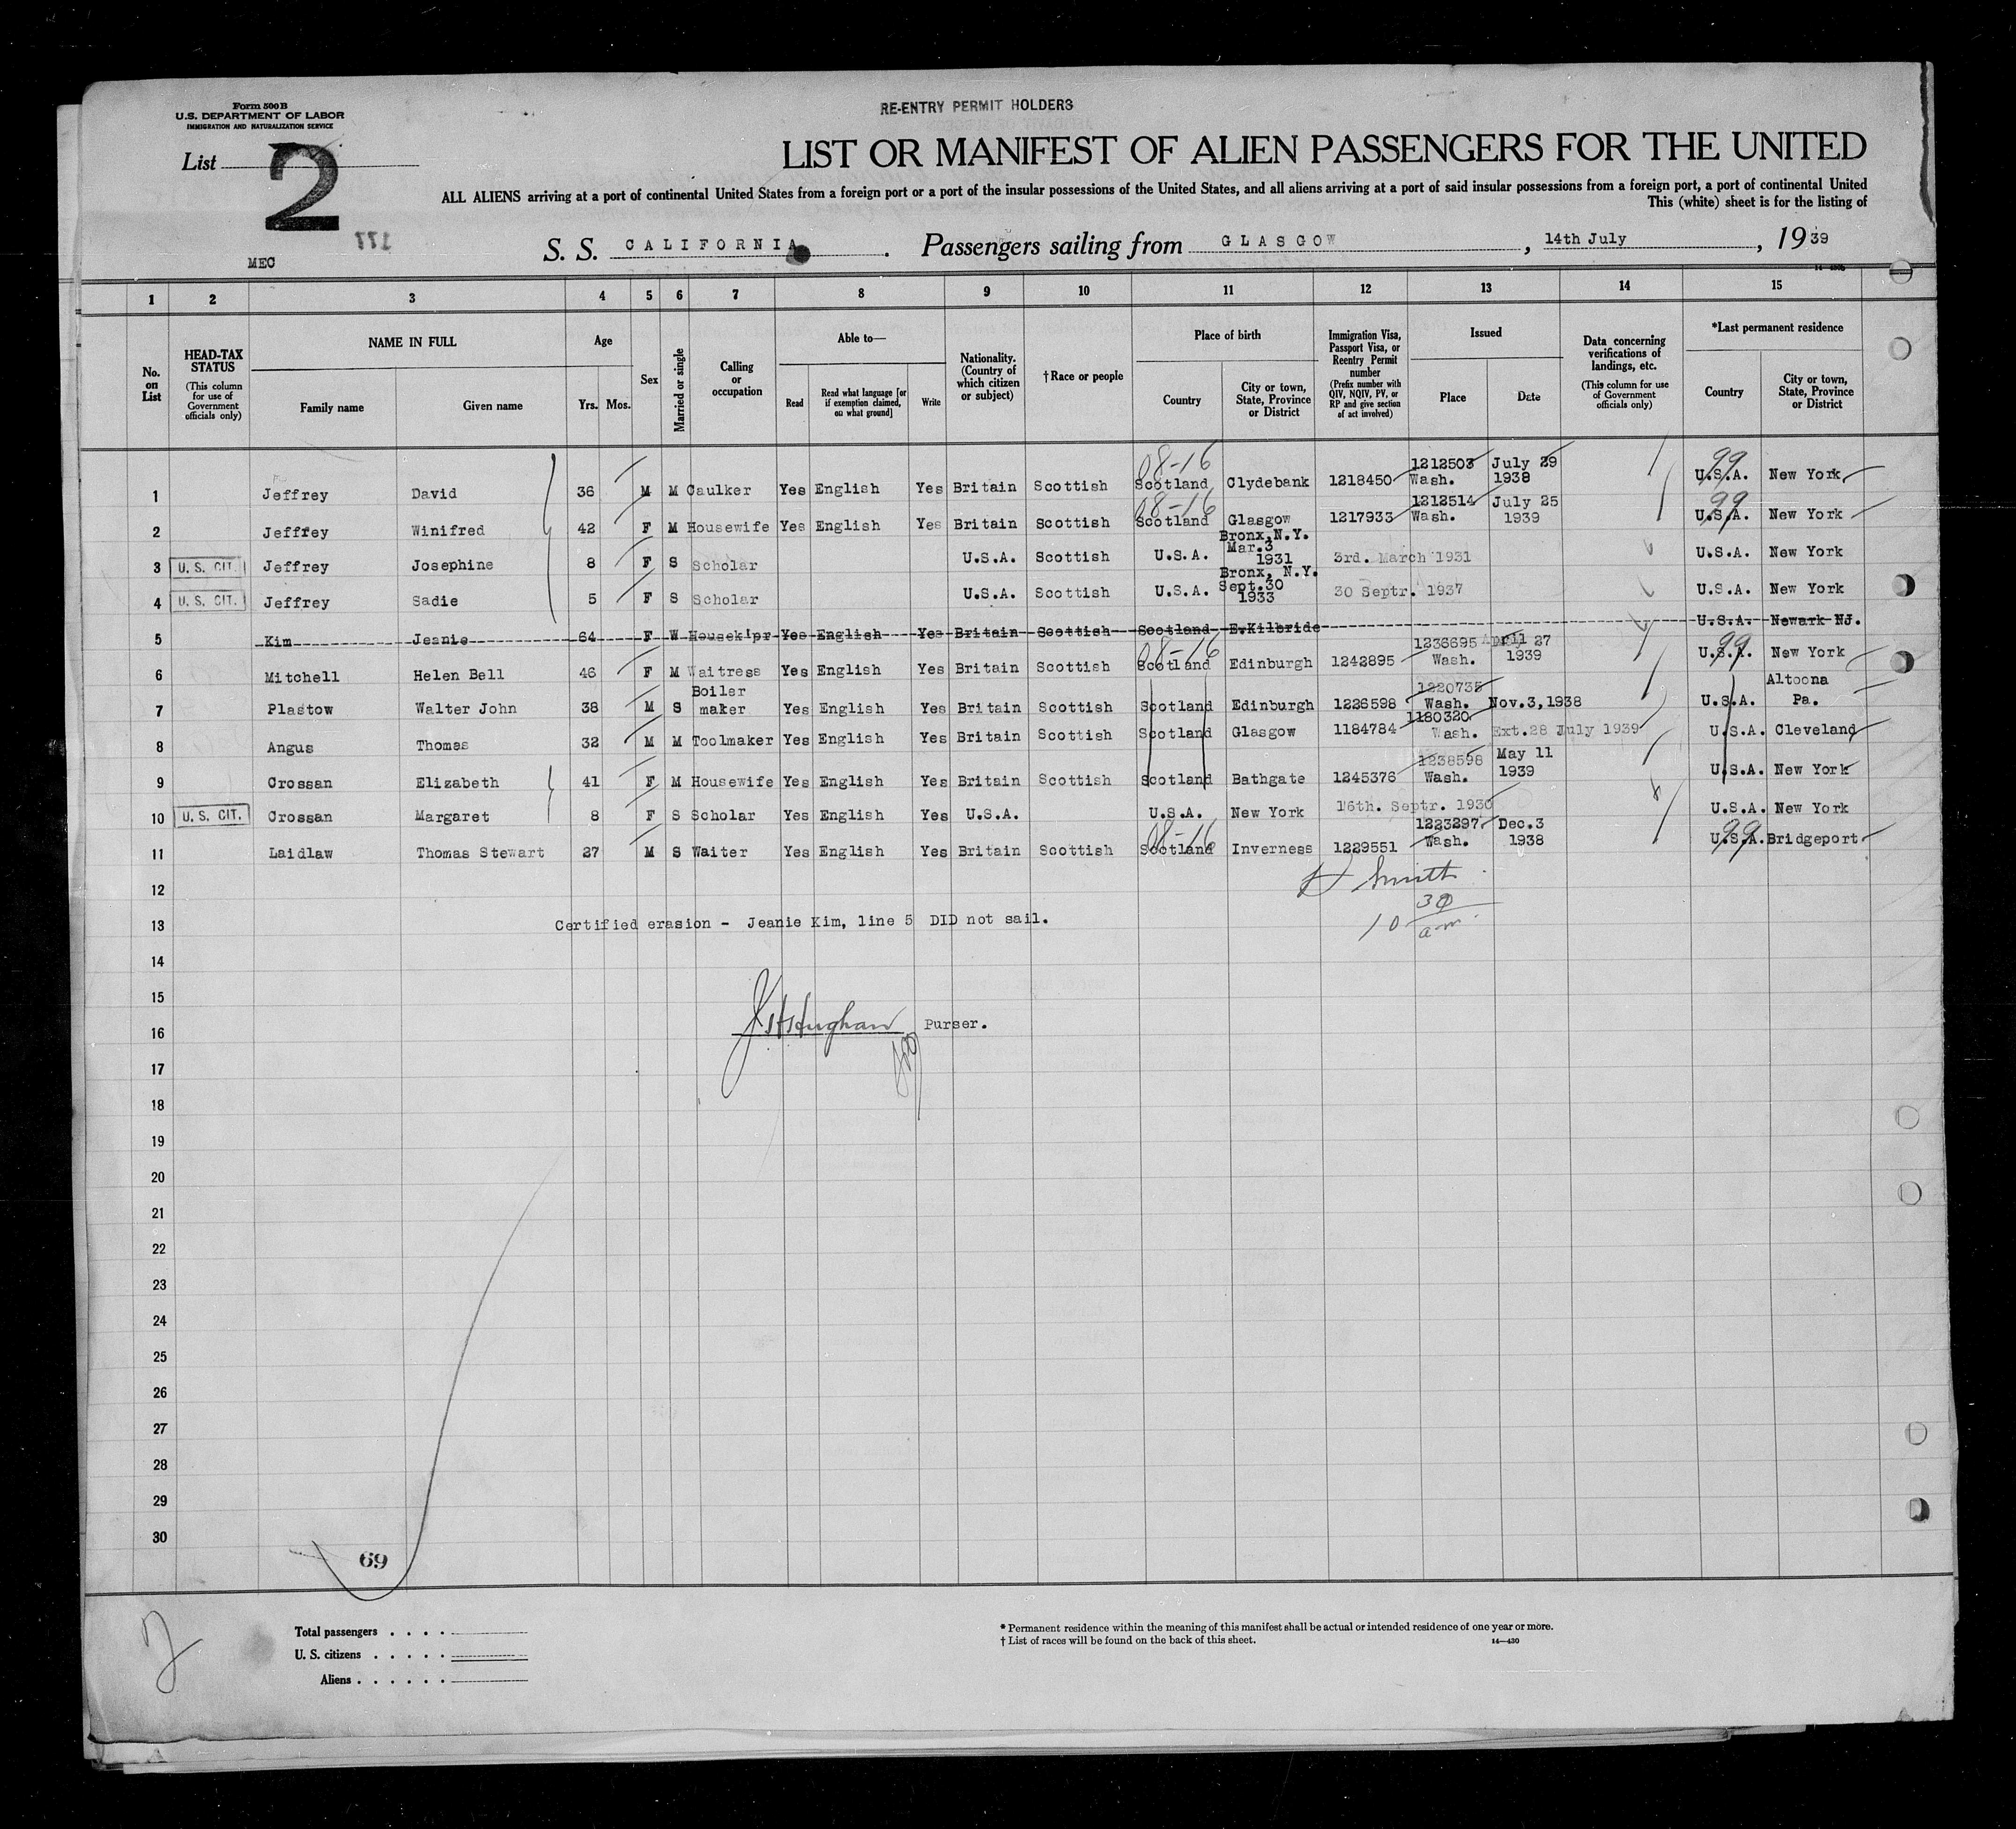 Form 500 B
U.S. DEPARTMENT OF LABOR
IMMIGRATION AND NATURALIZATION SERVICE
RE-ENTRY PERMIT HOLDERS
List 2
LIST OR MANIFEST OF ALIEN PASSENGERS FOR THE UNITED
ALL ALIENS arriving at a port of continental United States from a foreign port or a port of the insular possessions of the United States, and all aliens arriving at a port of said insular possessions from a foreign port, a port of continental United
This (white) sheet is for the listing of
177
MEC
S. S. CALIFORNIA. Passengers sailing from GLASGOW, 14th July, 1939
14—430b
1 2 3 4 5 6 7 8 9 10 11 12 13 14 15
No. on List
HEAD-TAX STATUS (This column for use of Government officials only)
NAME IN FULL
Family name Given name
Age
Yrs. Mos.
Sex
Married or single
Calling or occupation
Able to—
Read Read what language [or if exemption claimed, on what ground] Write
Nationality. (Country of which citizen or subject)
†Race or people
Place of birth
Country City or town, State, Province or District
Immigration Visa, Passport Visa, or Reentry Permit number (Prefix number with QIV, NQIV, PV, or RP and give section of act involved)
Issued
Place Date
Data concerning verifications of landings, etc. (This column for use of Government officials only)
*Last permanent residence
Country City or town, State, Province or District
08-16 1212503 July 29 99
1 Jeffrey David 36 M M Caulker Yes English Yes Britain Scottish Scotland Clydebank 1218450 Wash. 1938 U.S.A. New York
08-16 1212514 July 25 99
2 Jeffrey Winifred 42 F M Housewife Yes English Yes Britain Scottish Scotland Glasgow 1217933 Wash. 1939 U.S.A. New York
Bronx,N.Y.
3 U. S. CIT. Jeffrey Josephine 8 F S Scholar U.S.A. Scottish U.S.A. Mar.3 1931 3rd. March 1931 U.S.A. New York
Bronx, N.Y.
4 U. S. CIT. Jeffrey Sadie 5 F S Scholar U.S.A. Scottish U.S.A. Sept.30 1933 30 Septr. 1937 U.S.A. New York
5 Kim Jeanie 64 F W Housek'pr Yes English Yes Britain Scottish Scotland E.Kilbride U.S.A. Newark NJ.
08-16 1236695 April 27 99
6 Mitchell Helen Bell 46 F M Waitress Yes English Yes Britain Scottish Scotland Edinburgh 1242895 Wash. 1939 U.S.A. New York
Boiler 1220735 Altoona
7 Plastow Walter John 38 M S maker Yes English Yes Britain Scottish Scotland Edinburgh 1226598 Wash. Nov.3,1938 U.S.A. Pa.
1180320
8 Angus Thomas 32 M M Toolmaker Yes English Yes Britain Scottish Scotland Glasgow 1184784 Wash. Ext.28 July 1939 U.S.A. Cleveland
1238598 May 11
9 Crossan Elizabeth 41 F M Housewife Yes English Yes Britain Scottish Scotland Bathgate 1245376 Wash. 1939 U.S.A. New York
10 U. S. CIT. Crossan Margaret 8 F S Scholar Yes English Yes U.S.A. U.S.A. New York 16th. Septr. 1930 U.S.A. New York
08-16 1223297 Dec.3 99
11 Laidlaw Thomas Stewart 27 M S Waiter Yes English Yes Britain Scottish Scotland Inverness 1229551 Wash. 1938 U.S.A. Bridgeport
12 Smith
13 Certified erasion - Jeanie Kim, line 5 DID not sail. 10 30 a-m
14
15
16 Purser.
17
18
19
20
21
22
23
24
25
26
27
28
29
30
69
2
Total passengers
U. S. citizens
Aliens
* Permanent residence within the meaning of this manifest shall be actual or intended residence of one year or more.
† List of races will be found on the back of this sheet. 14—430